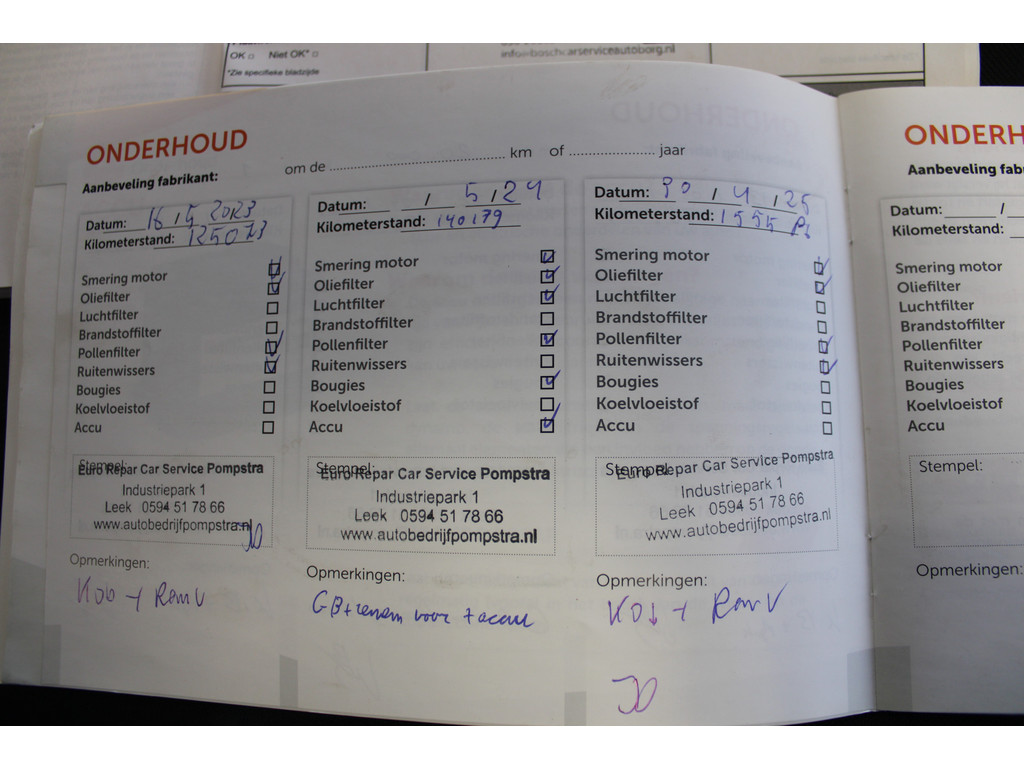 OK □ Niet OK* □
*Zie specifieke bladzijde
info@boschcarserviceautoborg.nl
ONDERHOUD
Aanbeveling fabrikant:
om de .................... km of .................... jaar
Datum: 16 / 5 2023
Kilometerstand: 125073
Smering motor
Oliefilter
Luchtfilter
Brandstoffilter
Pollenfilter
Ruitenwissers
Bougies
Koelvloeistof
Accu
Stempel:
Euro Repar Car Service Pompstra
Industriepark 1
Leek 0594 51 78 66
www.autobedrijfpompstra.nl
Opmerkingen:
Datum: / 5 / 24
Kilometerstand: 140179
Smering motor
Oliefilter
Luchtfilter
Brandstoffilter
Pollenfilter
Ruitenwissers
Bougies
Koelvloeistof
Accu
Stempel:
Euro Repar Car Service Pompstra
Industriepark 1
Leek 0594 51 78 66
www.autobedrijfpompstra.nl
Opmerkingen:
voor + accu
Datum: 30 / 4 / 25
Kilometerstand: 1555
Smering motor
Oliefilter
Luchtfilter
Brandstoffilter
Pollenfilter
Ruitenwissers
Bougies
Koelvloeistof
Accu
Stempel:
Euro Repar Car Service Pompstra
Industriepark 1
Leek 0594 51 78 66
www.autobedrijfpompstra.nl
Opmerkingen:
ONDERH
Aanbeveling fab
Datum: /
Kilometerstand:
Smering motor
Oliefilter
Luchtfilter
Brandstoffilter
Pollenfilter
Ruitenwissers
Bougies
Koelvloeistof
Accu
Stempel:
Opmerkingen: